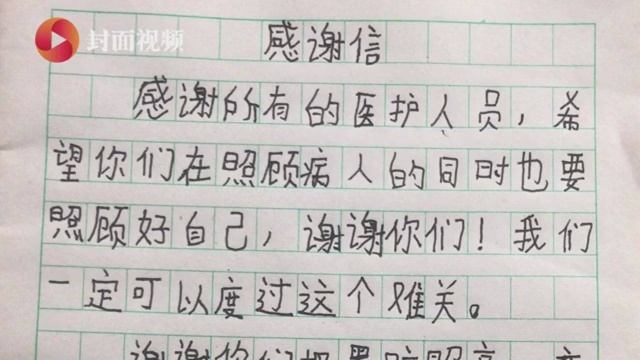 封面视频
感谢信
感谢所有的医护人员，希
望你们在照顾病人的同时也要
照顾好自己，谢谢你们！我们
一定可以度过这个难关。
谢谢你们